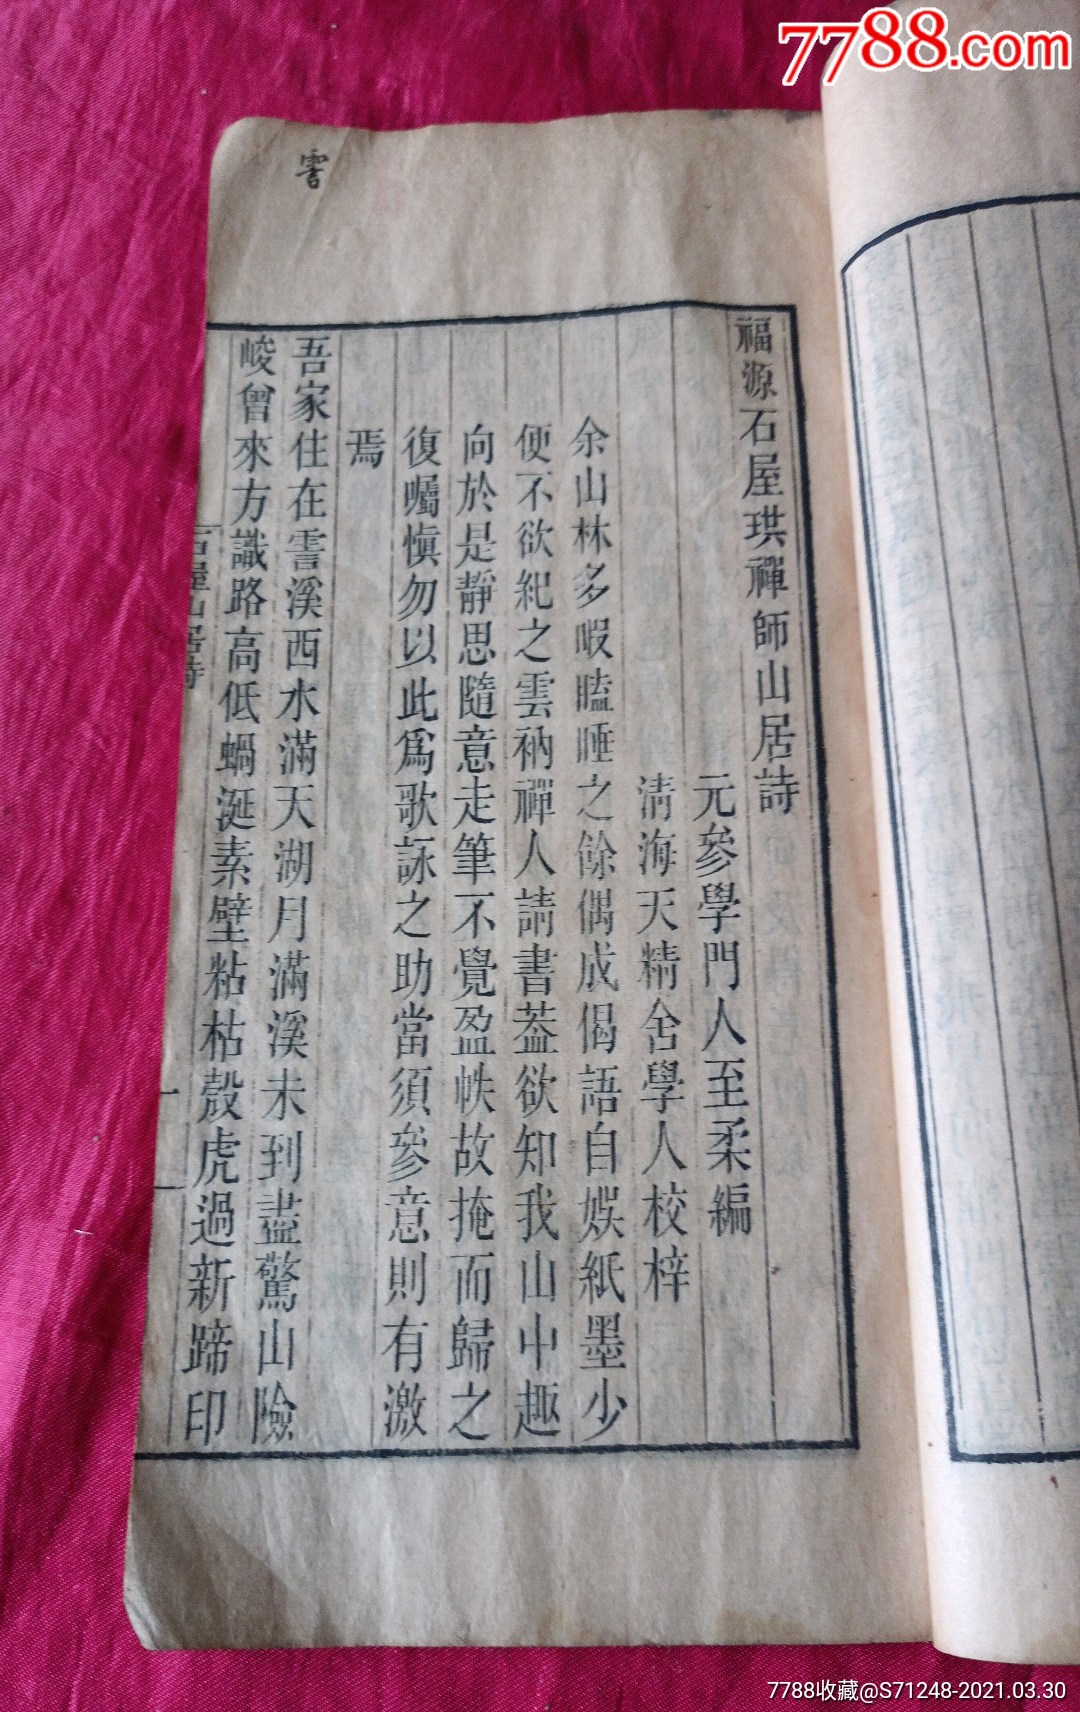 7788.com
霅
福源石屋珙禪師山居詩
元參學門人至柔編
清海天精舍學人校梓
余山林多暇瞌睡之餘偶成偈語自娛紙墨少
便不欲紀之雲衲禪人請書葢欲知我山中趣
向於是靜思隨意走筆不覺盈帙故掩而歸之
復囑慎勿以此爲歌詠之助當須參意則有激
焉
吾家住在霅溪西水滿天湖月滿溪未到盡驚山險
峻曾來方識路高低蝸涎素壁粘枯殼虎過新蹄印
石屋山居詩
一
7788收藏@S71248-2021.03.30